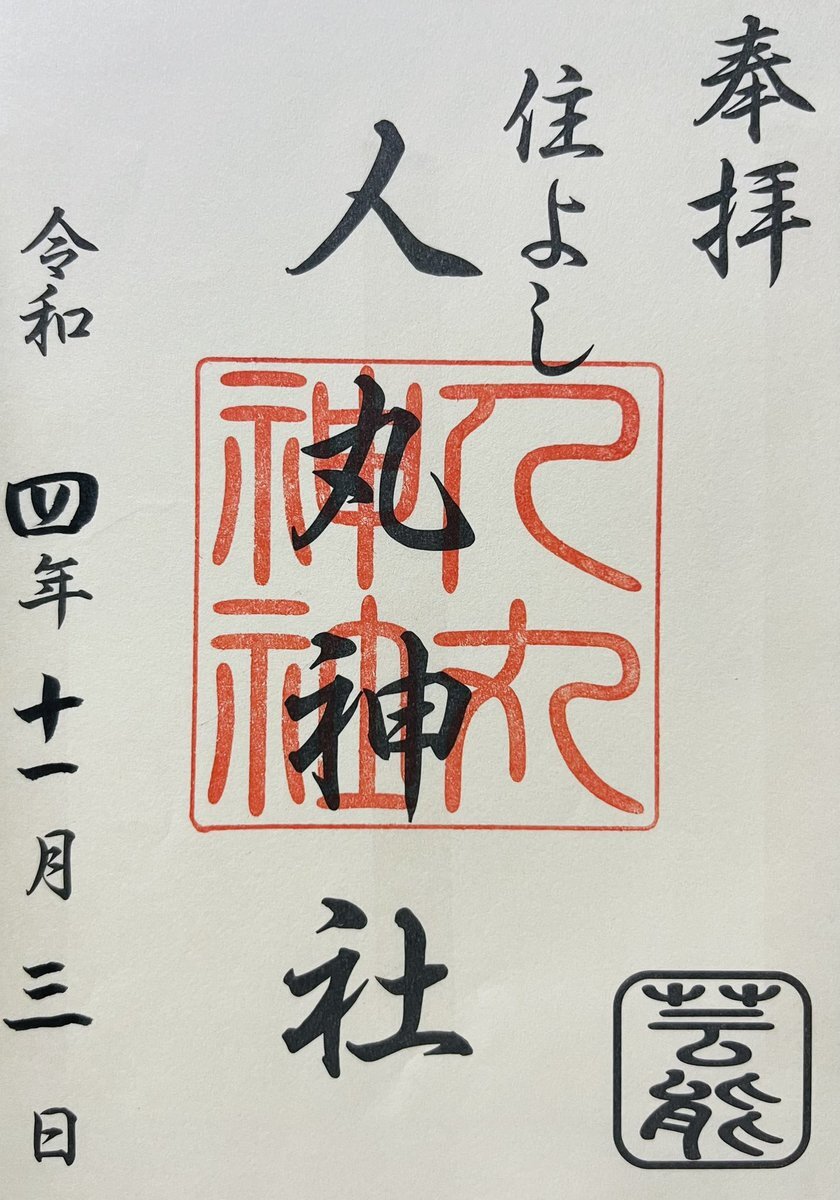 奉拝
住よし
人丸神社
人丸神社
令和四年十一月三日
芸能